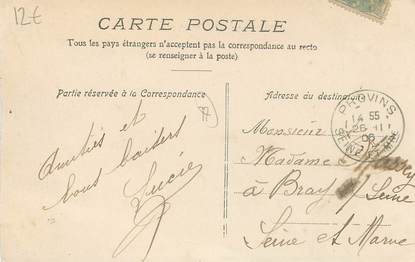 12€
CARTE POSTALE
Tous les pays étrangers n'acceptent pas la correspondance au recto
(se renseigner à la poste)
Partie réservée à la Correspondance
Adresse du destinataire
PROVINS
14 55
26 II
06
SEINE ET MARNE
Amitiés et
bons baisers
Lucie
Monsieur
Madame
à Bray s/ Seine
Seine et Marne